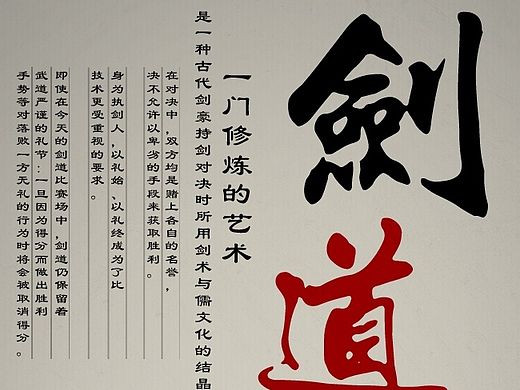 劍
道
一门修炼的艺术
是一种古代剑豪持剑对决时所用剑术与儒文化的结晶
在对决中，双方均是赌上各自的名誉，
决不允许以卑劣的手段来获取胜利。
身为执剑人，以礼始、以礼终成为了比
技术更受重视的要求。
即使在今天的剑道比赛场中，剑道仍保留着
武道严谨的礼节：一旦因为得分而做出胜利
手势等对落败一方无礼的行为时将会被取消得分。